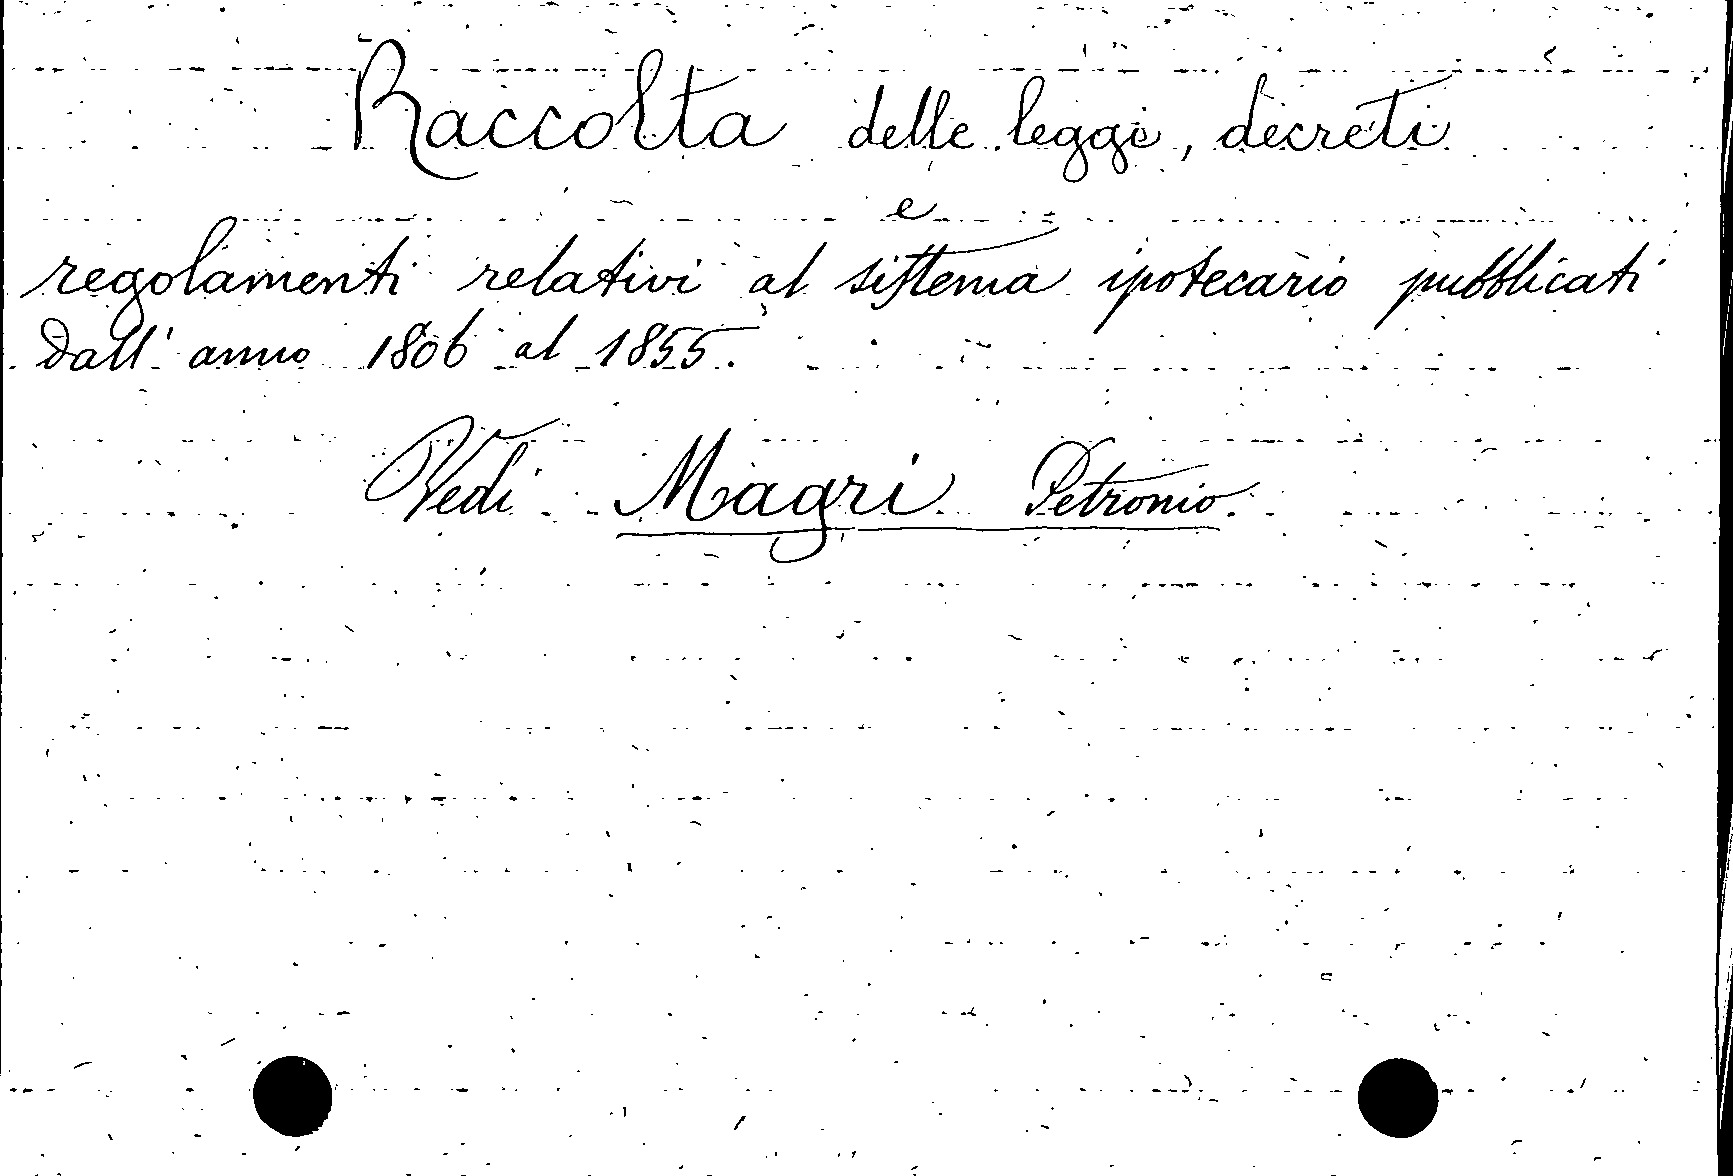 Raccolta delle leggi, decreti
e
regolamenti relativi al sistema ipotecario pubblicati
dall' anno 1806 al 1855.
Vedi Magri Petronio.